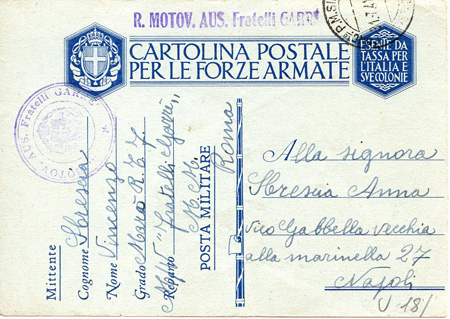 R. MOTOV. AUS. Fratelli GARRÈ
CARTOLINA POSTALE
PER LE FORZE ARMATE
ESENTE DA
TASSA PER
L'ITALIA E
SVE COLONIE
MOTOV. AUS. Fratelli GARRÈ
Mittente
Cognome Sbrescia
Nome Vincenzo
Grado
Reparto "Fratelli Garrè"
POSTA MILITARE
Roma
Alla signora
Sbrescia Anna
Vico Gabbella vecchia
alla marinella 27
Napoli